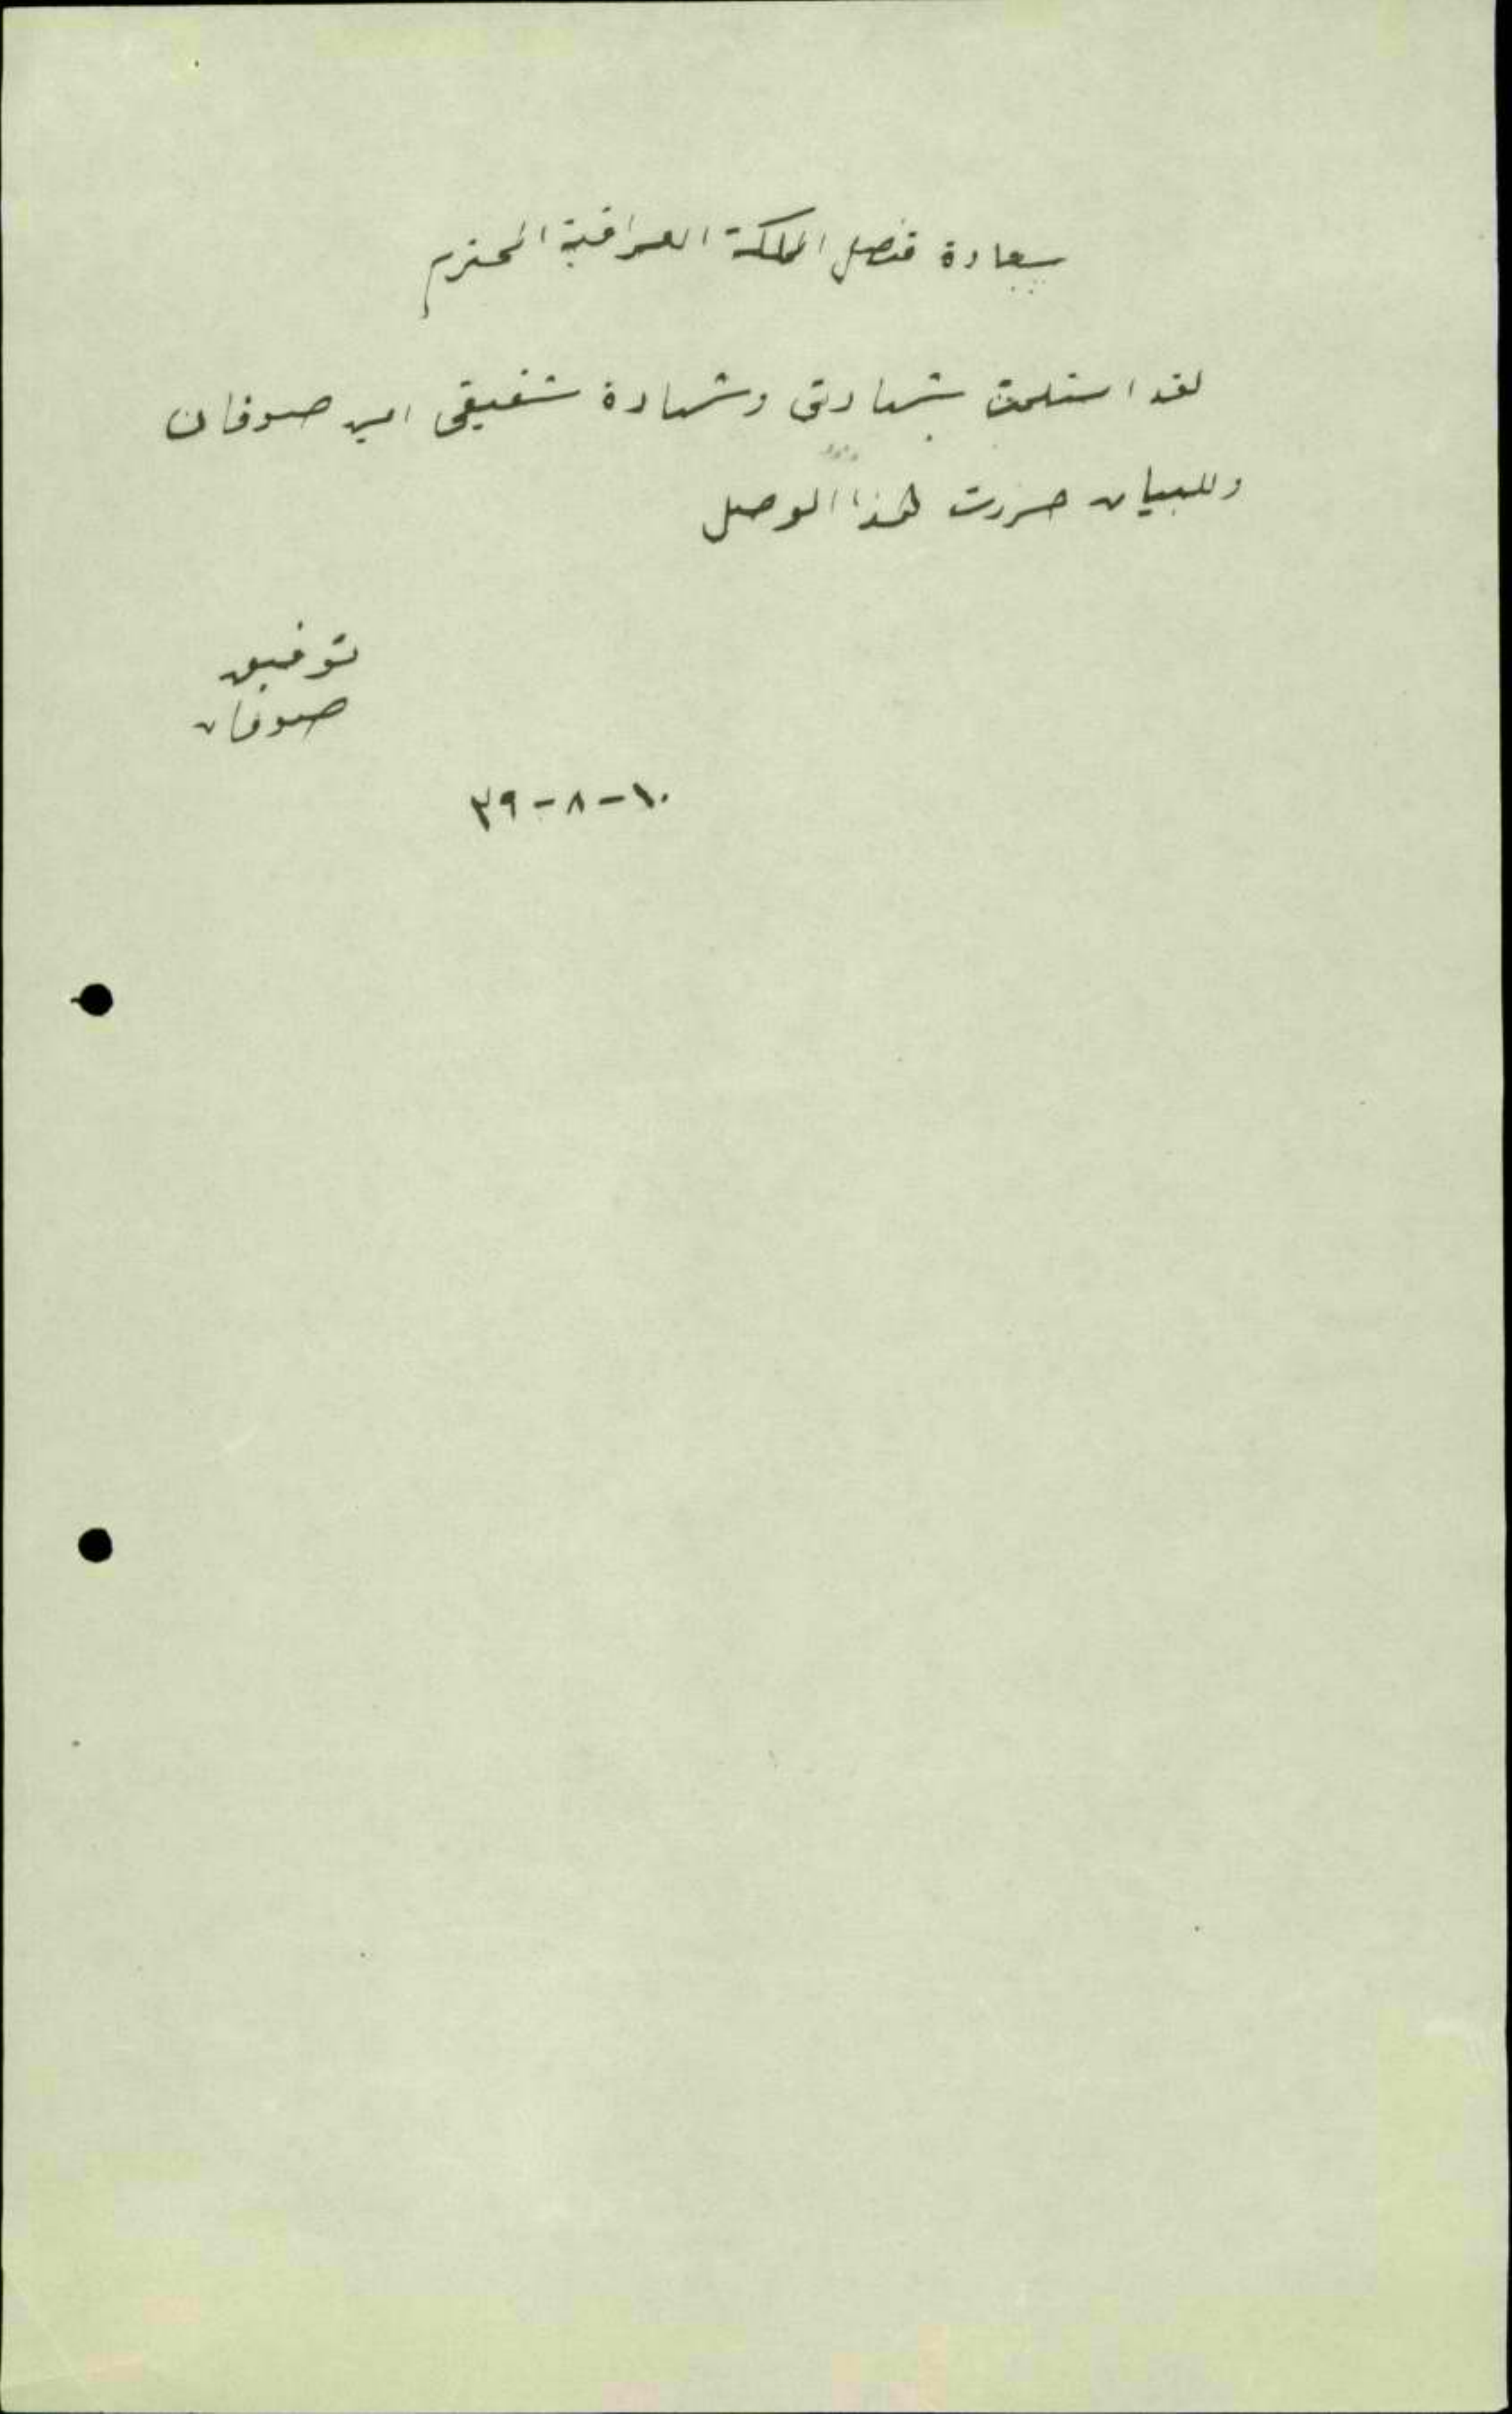 سعادة قنصل المملكة العراقية المحترم
لقد استلمت شهادتي وشهادة شقيقي امين صوفان
وللبيان حررت هذا الوصل
توفيق
صوفان
١٠-٨-٣٩